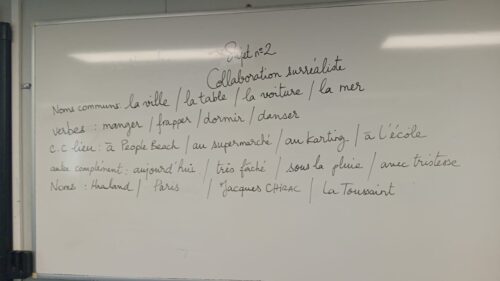 Sujet n°2
Collaboration surréaliste
Noms communs : la ville / la table / la voiture / la mer
verbes : manger / frapper / dormir / danser
C.C lieu : à People Beach / au supermarché / au Karting / à l'école
autre complément : aujourd'hui / très fâché / sous la pluie / avec tristesse
Noms : Haaland / Paris / Jacques CHIRAC / La Toussaint